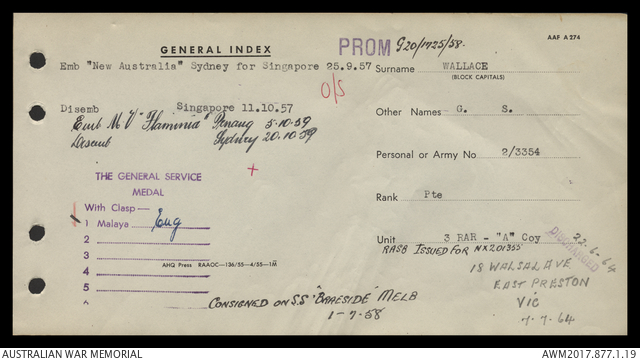 GENERAL INDEX
PROM G20/1725/58.
AAF A 274
Emb "New Australia" Sydney for Singapore 25.9.57
Surname WALLACE
(BLOCK CAPITALS)
O/S
Disemb Singapore 11.10.57
Emb M V "Flaminia" Penang 5.10.59
Disemb Sydney 20.10.59
Other Names G. S.
Personal or Army No 2/3354
THE GENERAL SERVICE
MEDAL
With Clasp—
1 Malaya
2
3
4
5
6
AHQ Press RAAOC—136/55—4/55—1M
Rank Pte
Unit 3 RAR - "A" Coy
RASB ISSUED FOR NX201355
DISCHARGED 22-6-64
18 WALSAL AVE
EAST PRESTON
VIC
7-7-64
CONSIGNED ON S.S "BRAESIDE" MELB
1-7-58
AUSTRALIAN WAR MEMORIAL
AWM2017.877.1.19